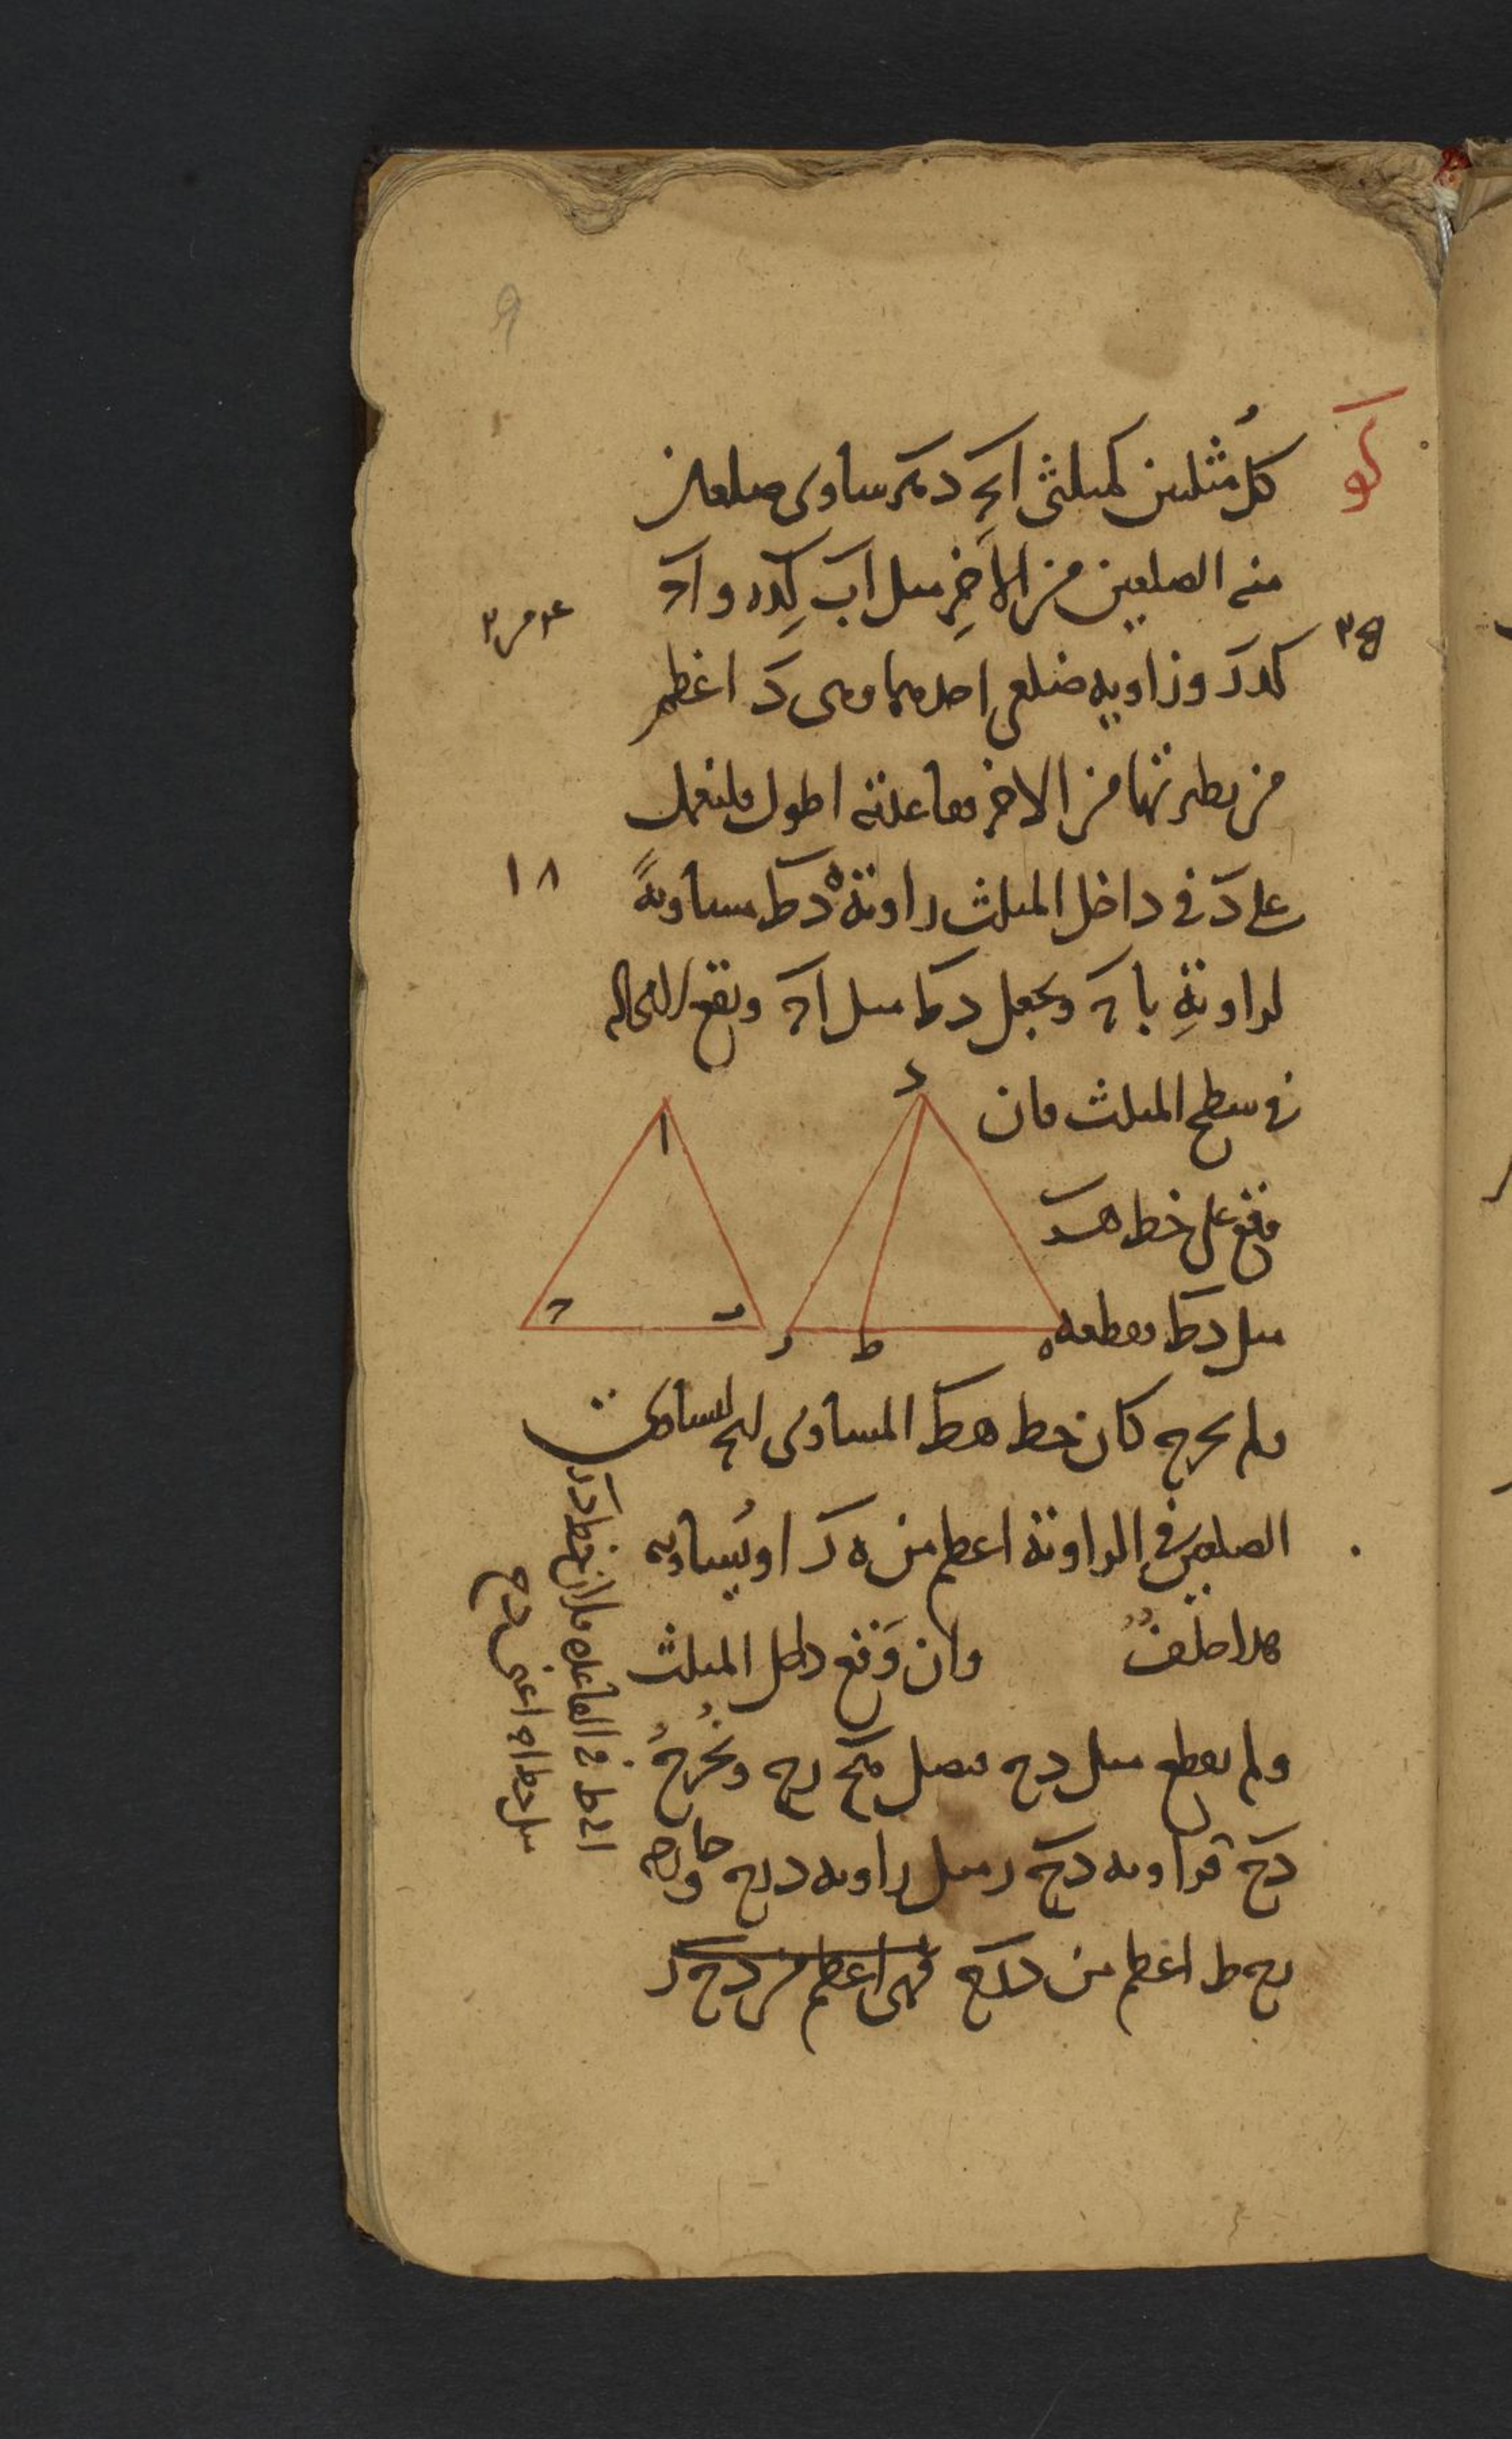 كو
كل مثلثين كمثلثى ابج دهز ساوى ضلعان
منه الضلعين من الاخر مثل اب كده واج
كدز وزاويه ضلعى احدهما وهى د اعظم
من نظيرتها من الاخر فقاعدته اطول فلنعمل
على د فى داخل المثلث زاوية ه د ط مساويةً
لزاوية باج ونجعل دط مثل اج ويقع لا محاله
فى سطح المثلث فان
وقع على خط هز
مثل دط فقطعه
ولم يخرج كان خط هط المساوى لبج لتساوى
الضلعين فى الزاوية اعظم من ه ز او يُساويه
هذا خلف وان وَقع داخل المثلث
ولم يقطع مثل دح فنصل هح زح ونُخرجُ
دح فزاويه دح ز مثل زاويه دزح
زح ط اعظم من دزح فهى اعظم من دح ز
٣٥
١٨
د
ا
ج
ب
ز
ط
ه
الى ط فى القاعده فلان خط د ز
مثل خط اج اعنى دح